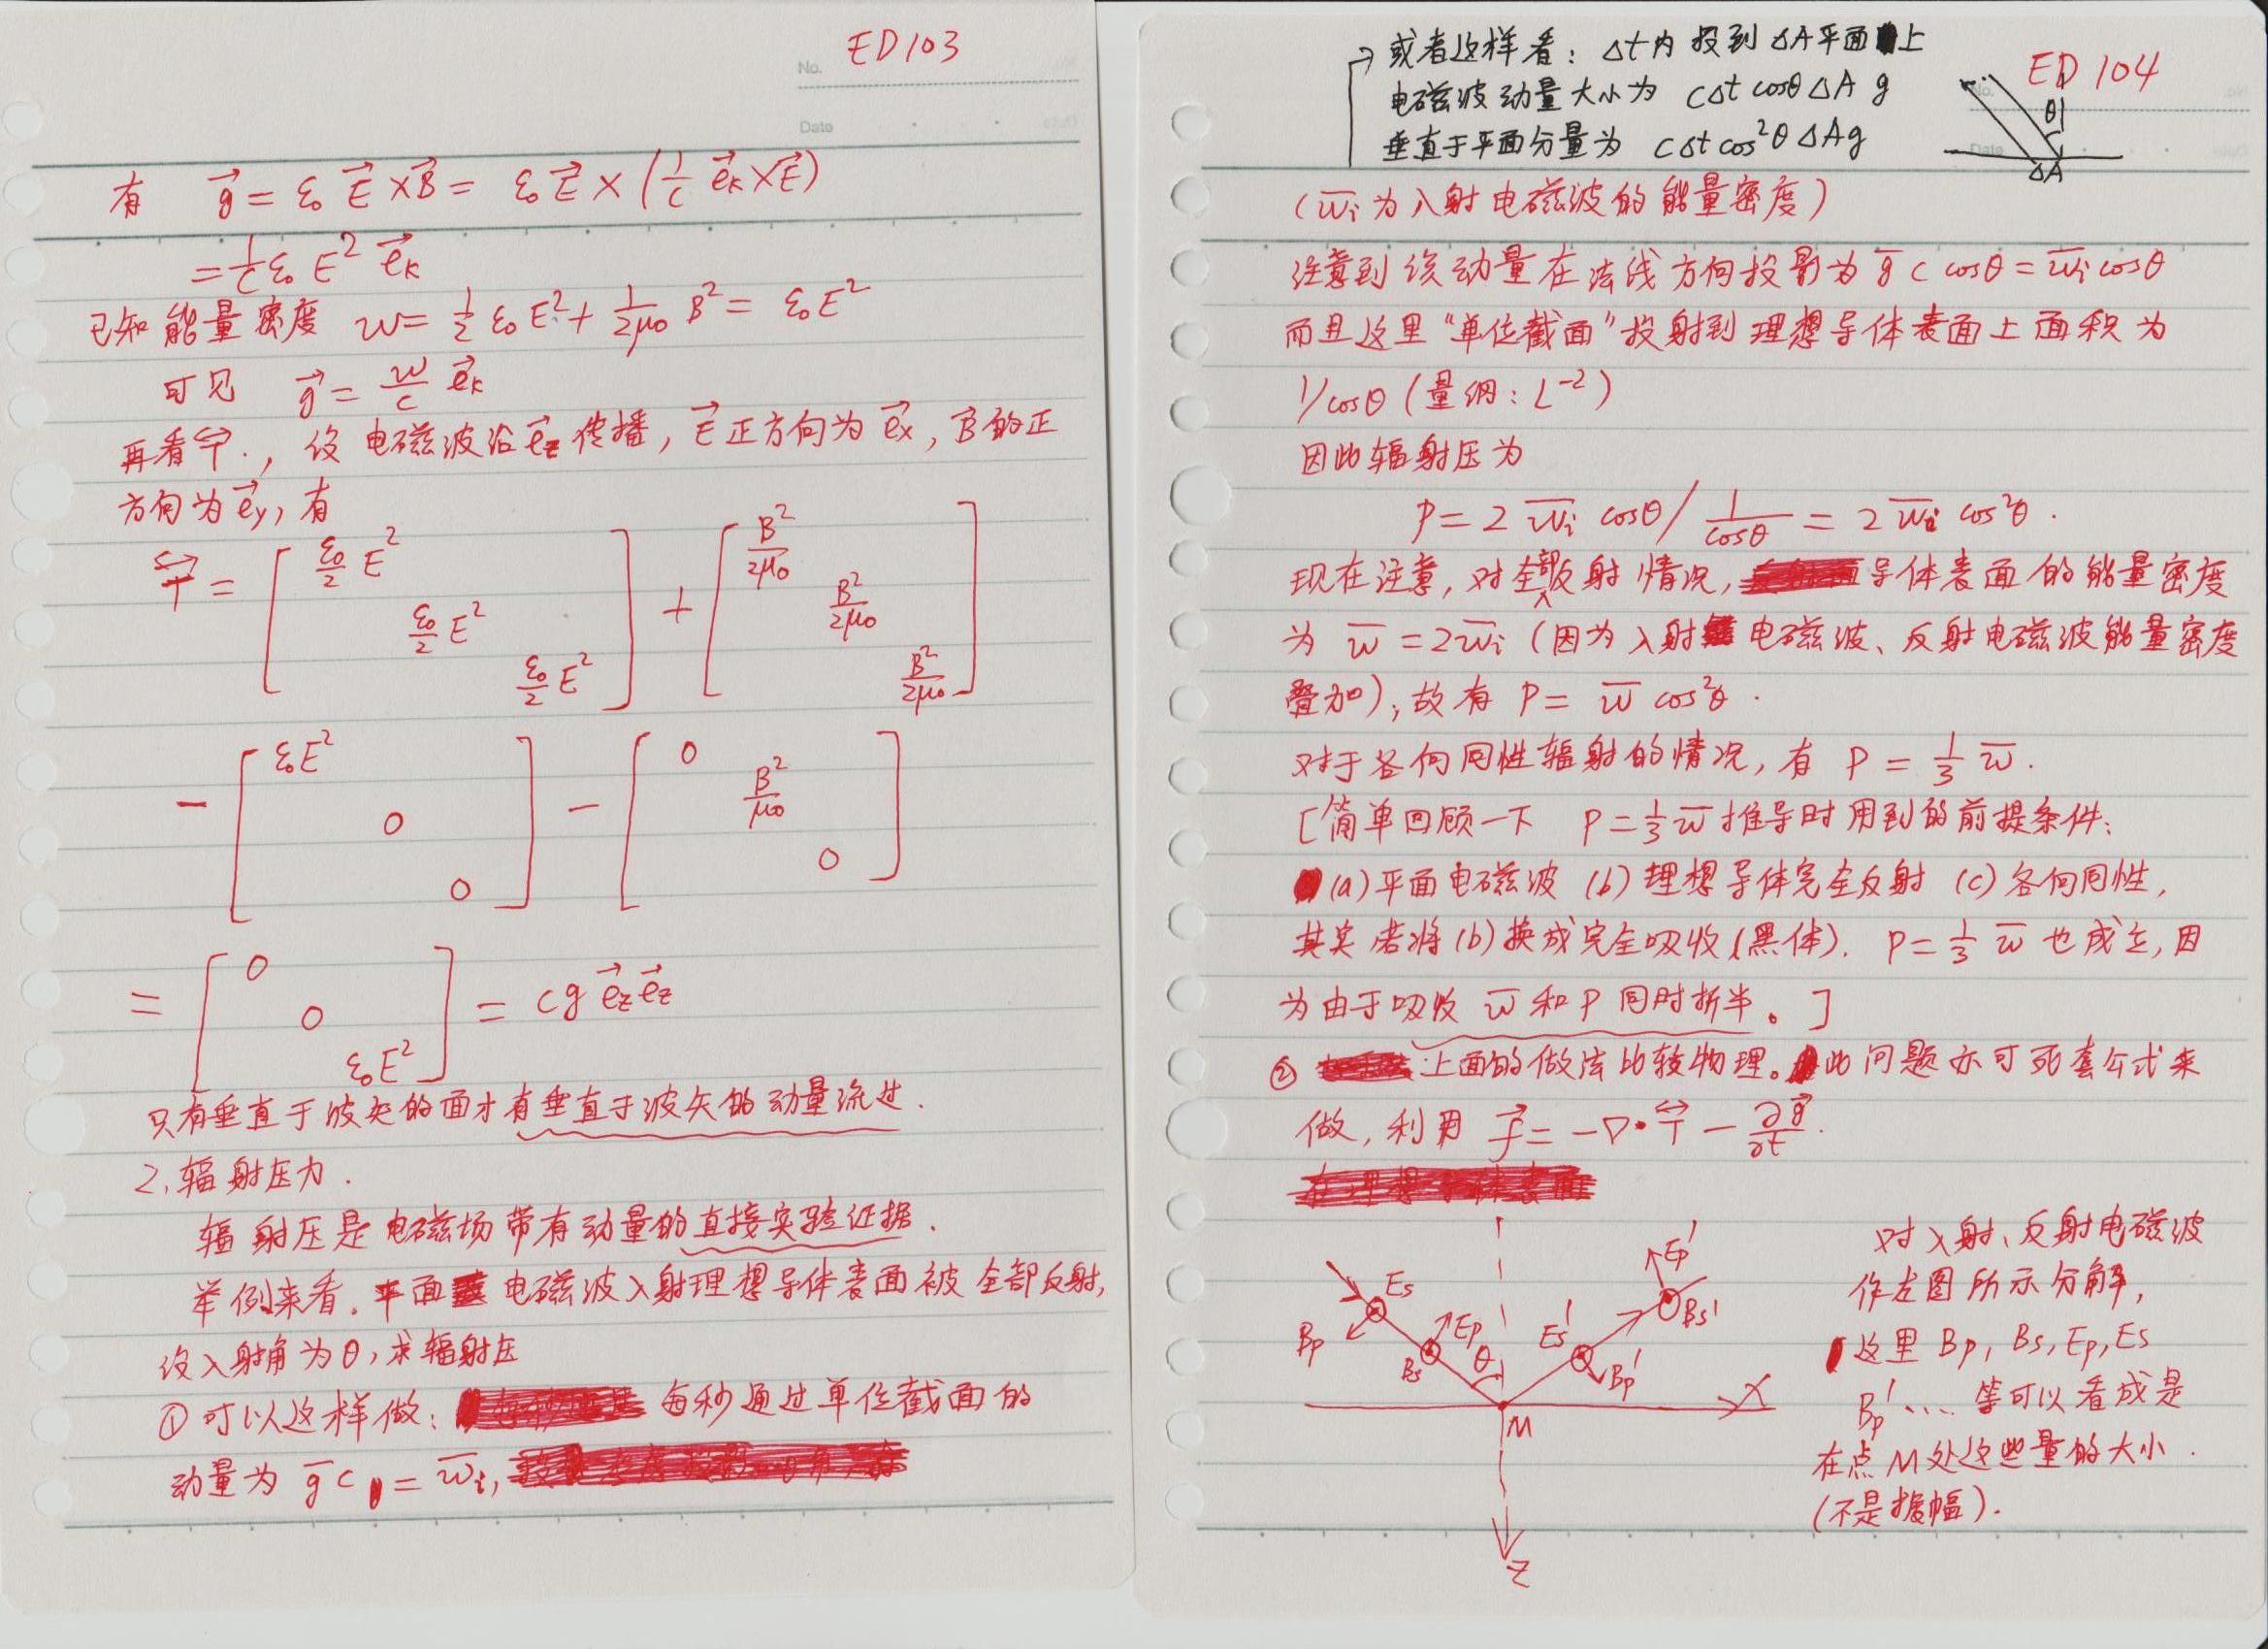 ED103
No.
Date
有 g⃗ = ε₀ E⃗ × B⃗ = ε₀ E⃗ × (1/c e⃗k × E⃗)
= 1/c ε₀ E² e⃗k
已知能量密度 w = 1/2 ε₀ E² + 1/2μ₀ B² = ε₀ E²
可见 g⃗ = w/c e⃗k
再看 T⃡., 设电磁波沿 e⃗z 传播, E⃗ 正方向为 e⃗x, B⃗ 的正
方向为 e⃗y, 有
T⃡ = [ε₀/2 E² ε₀/2 E² ε₀/2 E²] + [B²/2μ₀ B²/2μ₀ B²/2μ₀]
− [ε₀E² 0 0] − [0 B²/μ₀ 0]
= [0 0 ε₀E²] = cg e⃗z e⃗z
只有垂直于波矢的面才有垂直于波矢的动量流过.
2. 辐射压力.
辐射压是电磁场带有动量的直接实验证据.
举例来看. 平面电磁波入射理想导体表面被全部反射,
设入射角为θ, 求辐射压
① 可以这样做: 每秒通过单位截面的
动量为 g̅c = w̅i,
→ 或者这样看: Δt内投到ΔA平面上
电磁波动量大小为 cΔt cosθ ΔA g
垂直于平面分量为 cΔt cos²θ ΔA g
ED 104
No.
Date
θ
ΔA
(w̅i 为入射电磁波的能量密度)
注意到该动量在法线方向投影为 g̅ c cosθ = w̅i cosθ
而且这里“单位截面”投射到理想导体表面上面积为
1/cosθ (量纲: L⁻²)
因此辐射压为
P = 2 w̅i cosθ / 1/cosθ = 2 w̅i cos²θ.
现在注意, 对全部反射情况, 导体表面的能量密度
为 w̅ = 2w̅i (因为入射电磁波、反射电磁波能量密度
叠加), 故有 P = w̅ cos²θ.
对于各向同性辐射的情况, 有 P = 1/3 w̅.
[简单回顾一下 P = 1/3 w̅ 推导时用到的前提条件:
(a) 平面电磁波 (b) 理想导体完全反射 (c) 各向同性,
其实若将(b)换成完全吸收(黑体). P = 1/3 w̅ 也成立, 因
为由于吸收 w̅ 和 P 同时折半。]
② 上面的做法比较物理。此问题亦可死套公式来
做, 利用 f⃗ = −∇·T⃡ − ∂g⃗/∂t.
Es
Bp
Ep
Bs
θ
Es'
Bp'
Ep'
Bs'
M
X
Z
对入射、反射电磁波
作左图所示分解,
这里 Bp, Bs, Ep, Es
Bp'.... 等可以看成是
在点M处这些量的大小.
(不是振幅).